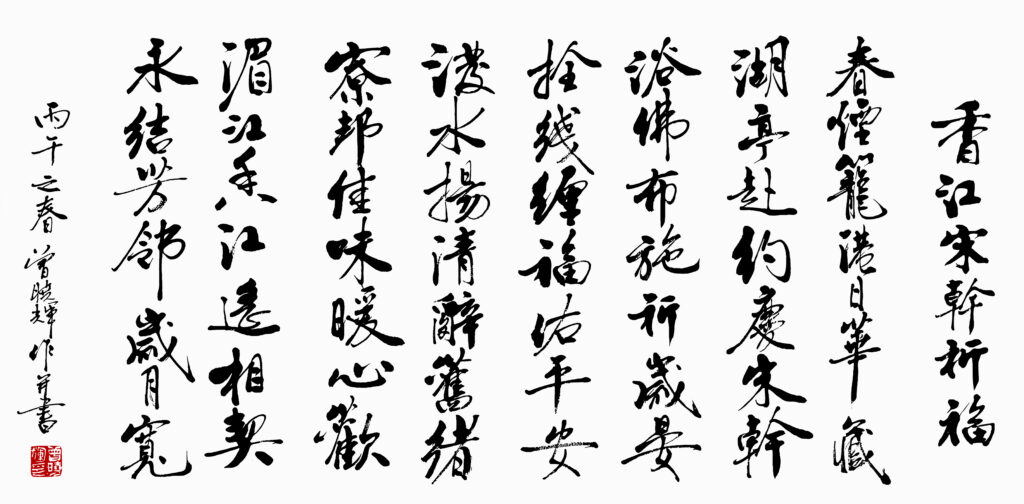 香江宋幹祈福
春煙籠港日華藏
湖亭赴約慶宋幹
浴佛布施祈歲晏
拴綫纏福佑平安
潑水揚清辭舊緒
寮邦佳味暖心歡
湄江香江遙相契
永結芳鄰歲月寬
丙午之春 曾曉輝作并書